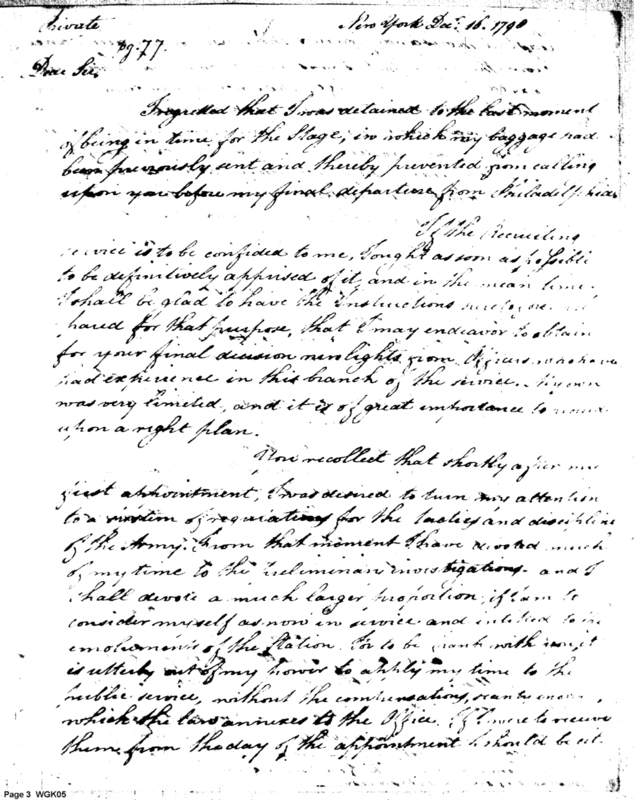 Private New York Decr. 16. 1798
pg. 77
Dear Sir,
I regretted that I was detained to the last moment
of being in time for the Stage, in which my baggage had
been previously sent and thereby prevented from calling
upon you before my final departure from Philadelphia
If the Recruiting
service is to be confided to me, I ought as soon as possible
to be definitively apprised of it, and in the mean time
I shall be glad to have the Instructions
pared for that purpose, that I may endeavor to obtain
for your final decision new lights from Officers who have
had experience in this branch of the service. My own
was very limited, and it is of great importance to
upon a right plan.
You recollect that shortly after my
first appointment, I was desired to turn my attention
to a system of regulations for the tactics and discipline
of the Army. From that moment I have devoted much
of my time to the preliminary investigations. and I
shall devote a much larger proportion, if I am to
consider myself as now in service and intitled to the
emoluments of the station. For to be frank with you, it
is utterly out of my power to apply my time to the
public service, without the compensations, scanty enough,
which the law annexes to the Office. If I were to receive
them from the day of the appointment I should be at
Page 3 WGK05